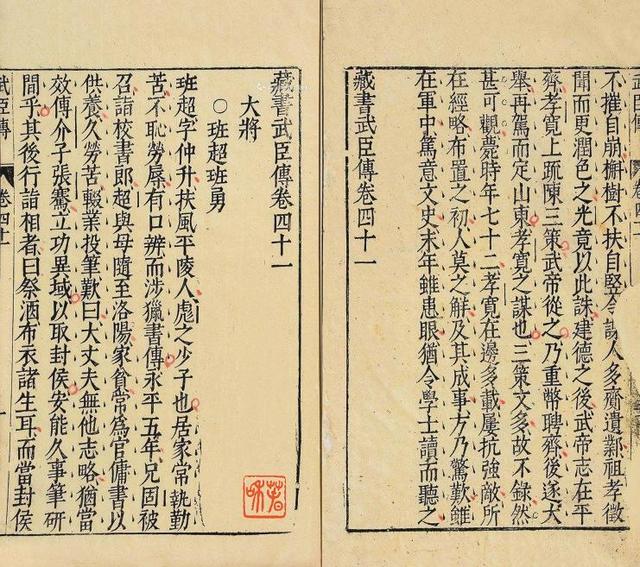 不摧自崩槲樹不扶自堅令諜人多齎遺鄴祖孝徵
聞而更潤色之光竟以此誅建德之後武帝志在平
齊孝寬上疏陳三策武帝從之乃重幣聘齊後遂大
舉再駕而定山東孝寬之謀也三策文多故不錄然
甚可觀薨時年七十二孝寬在邊多載屢抗強敵所
在經略布置之初人莫之解及其成事方乃驚歎雖
在軍中篤意文史末年雖患眼猶令學士讀而聽之
藏書武臣傳卷四十一
藏書武臣傳卷四十一
大將
○班超班勇
班超字仲升扶風平陵人彪之少子也居家常執勤
苦不恥勞辱有口辨而涉獵書傳永平五年兄固被
召詣校書郎超與母隨至洛陽家貧常爲官傭書以
供養久勞苦輟業投筆歎曰大丈夫無他志略猶當
效傅介子張騫立功異域以取封侯安能久事筆研
間乎其後行詣相者曰祭酒布衣諸生耳而當封侯
武臣傳 卷四十一